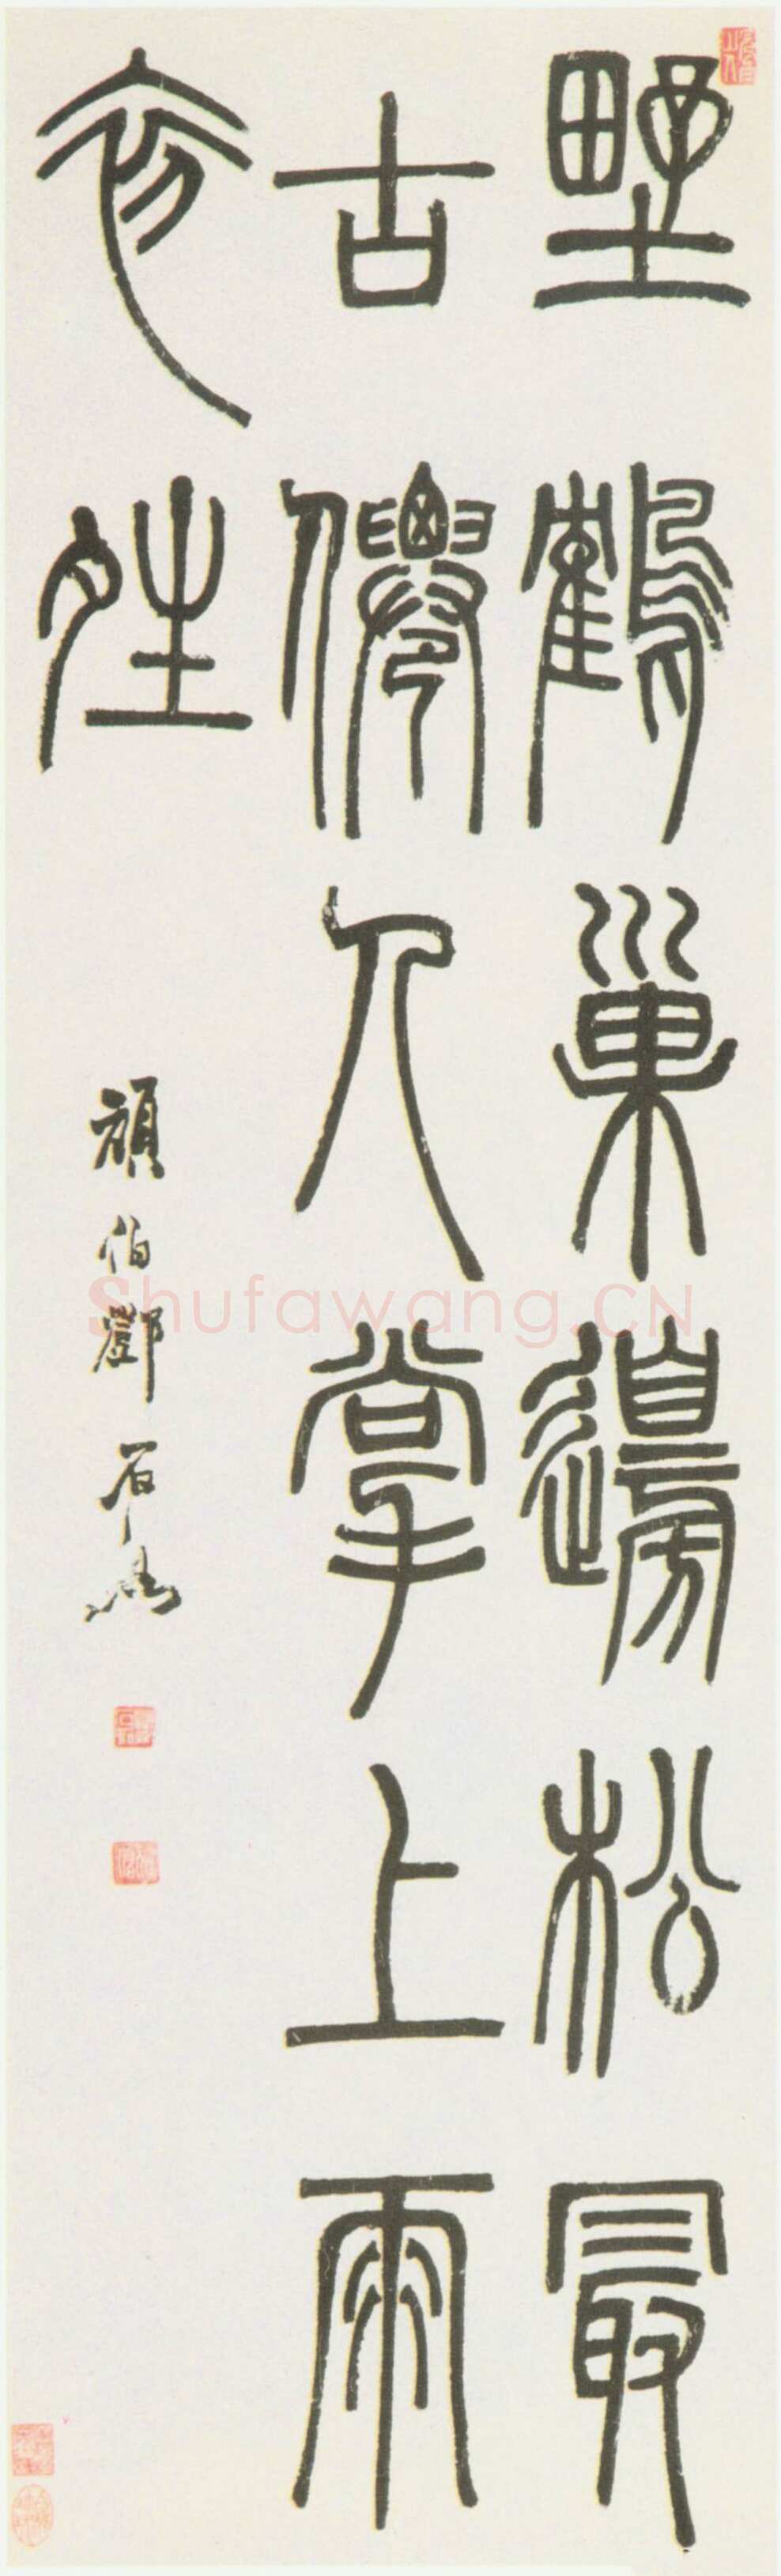 野鶴巢邊松最
古僊人掌上雨
初夝
頑伯鄧石如
Shufawang.CN